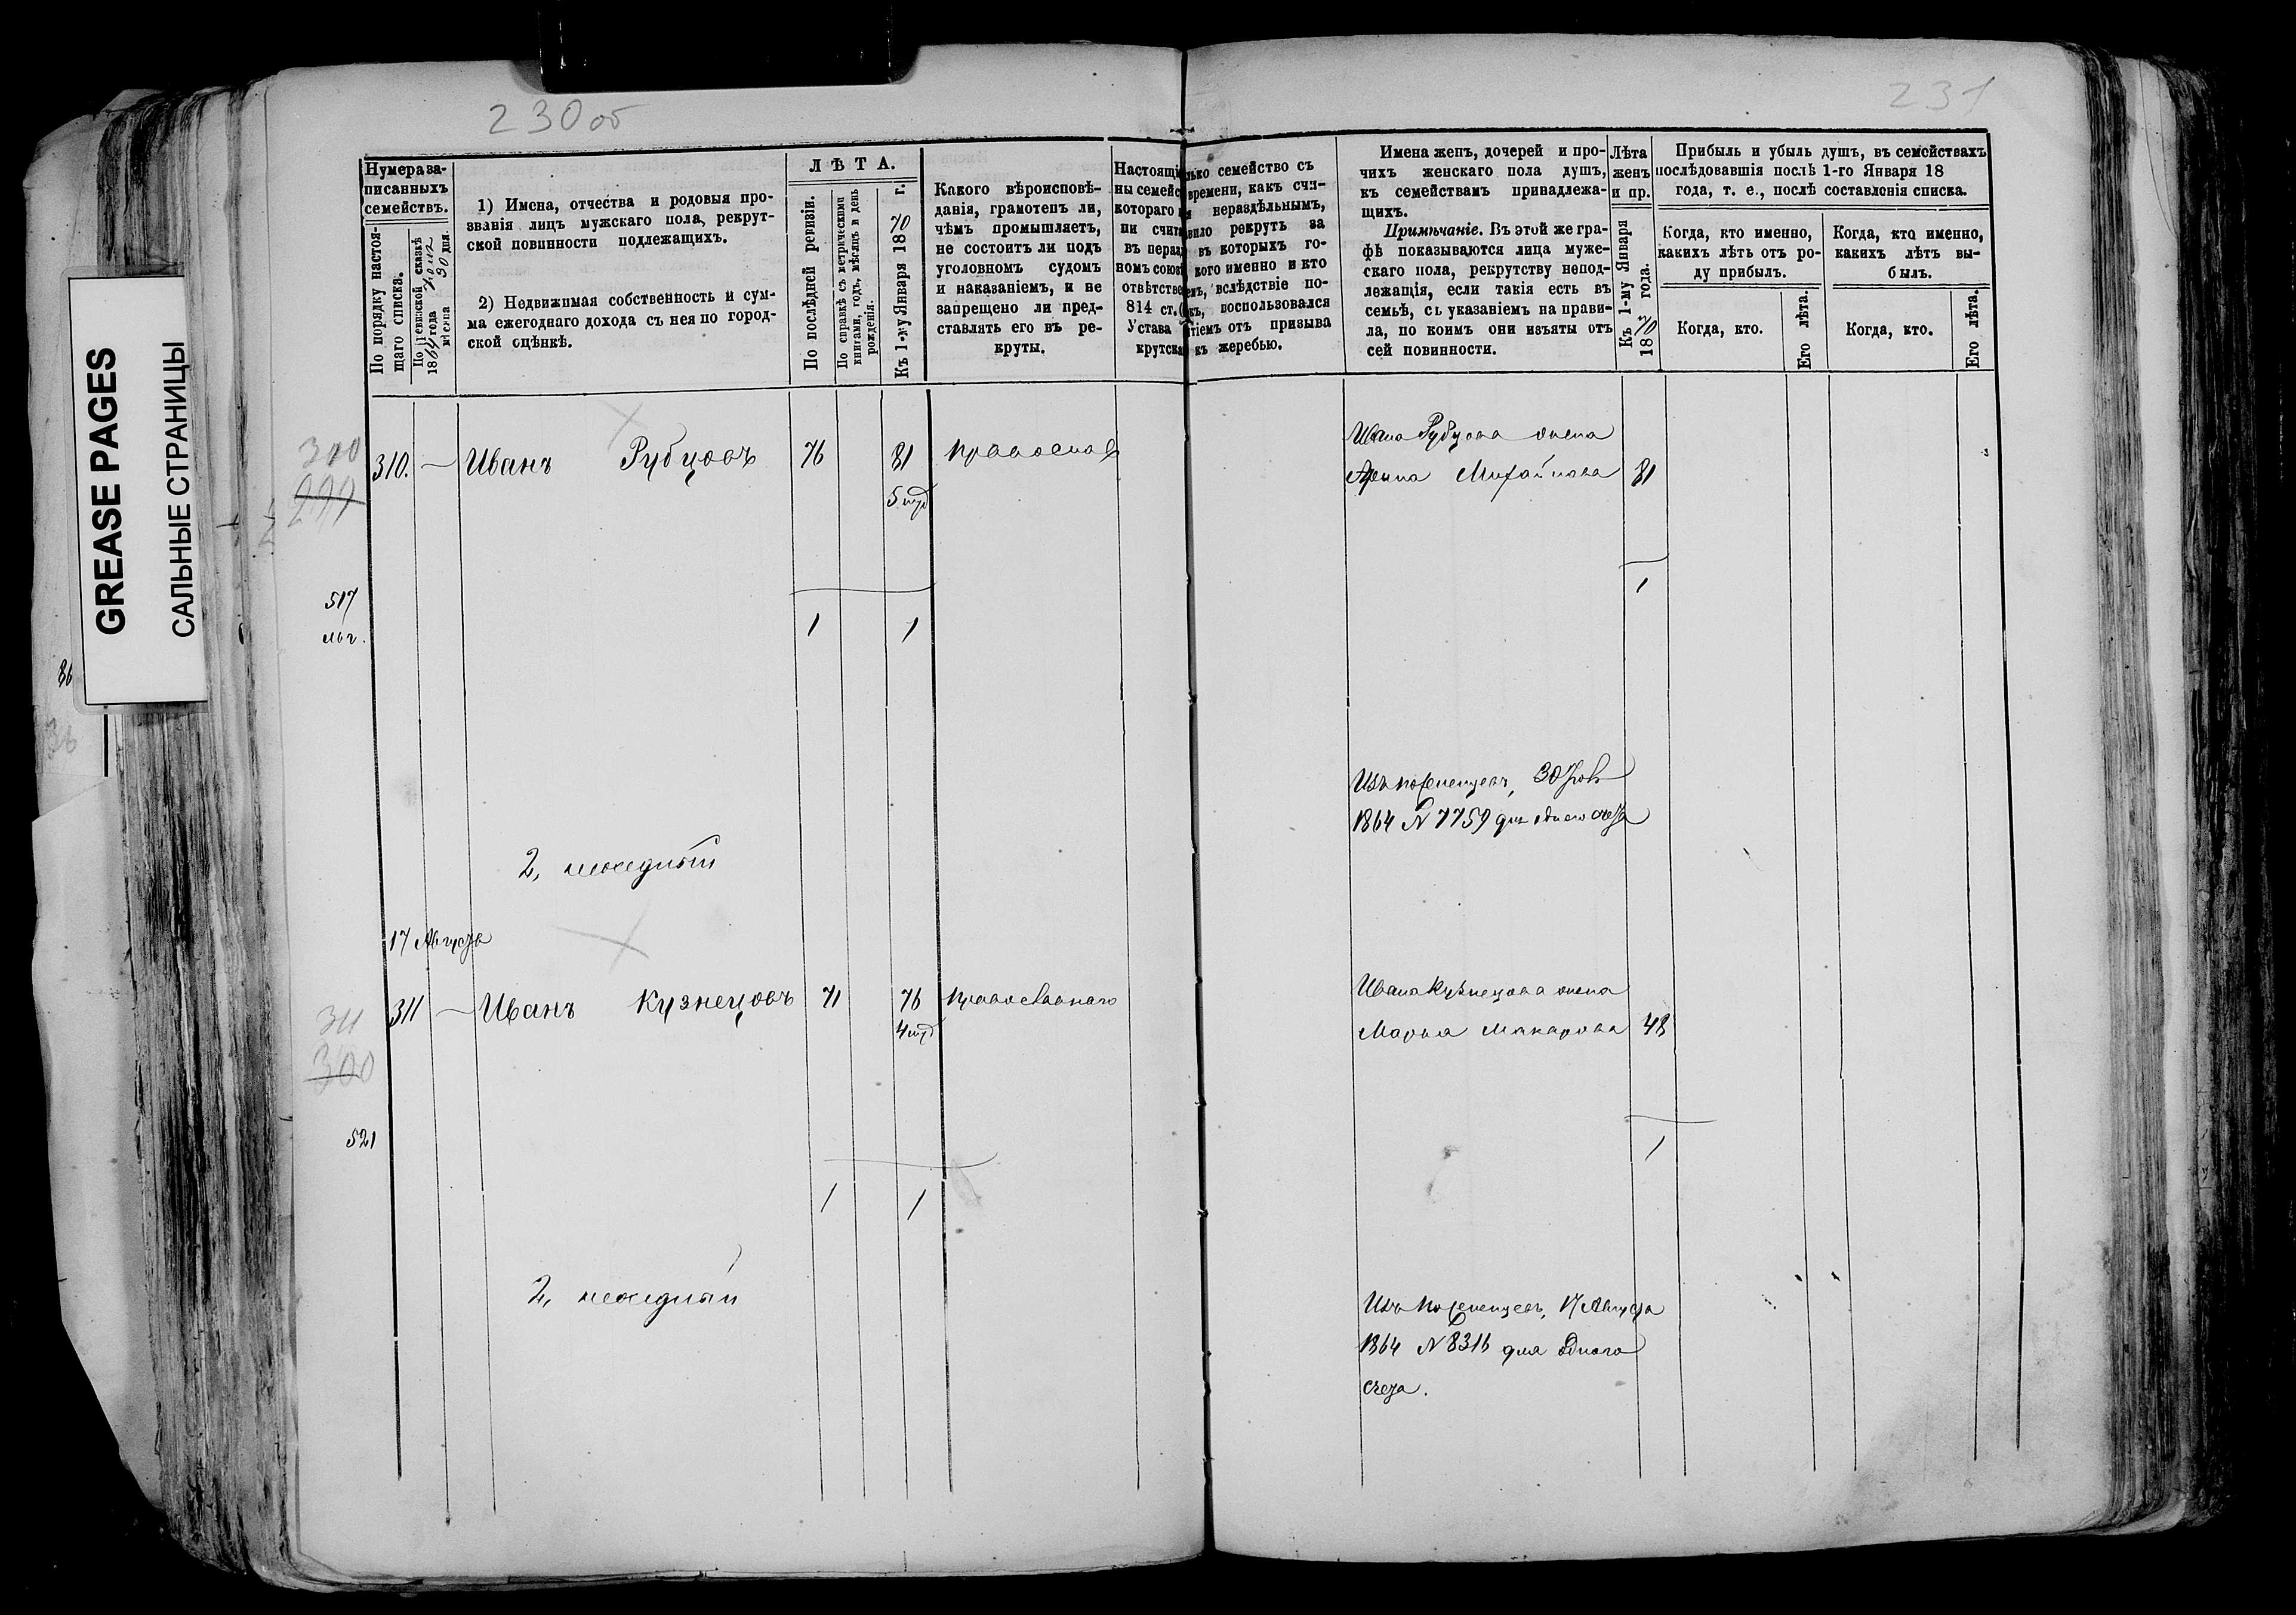 230 об
231
GREASE PAGES
САЛЬНЫЕ СТРАНИЦЫ
Нумера за-
писанныхъ
семействъ.
По порядку настоя-
щаго списка.
По ревизской сказкѣ
1864 года
мѣсяца 30 дня.
1) Имена, отчества и родовыя про-
званія лицъ мужскаго пола, рекрут-
ской повинности подлежащихъ.
2) Недвижимая собственность и сум-
ма ежегоднаго дохода съ нея по город-
ской оцѣнкѣ.
ЛѢТА.
По послѣдней ревизіи.
По справкѣ съ метрическими
книгами, годъ, мѣсяцъ и день
рожденія.
Къ 1-му Января 1870 г.
Какого вѣроисповѣ-
данія, грамотенъ ли,
чѣмъ промышляетъ,
не состоитъ ли подъ
уголовномъ судомъ
и наказаніемъ, и не
запрещено ли пред-
ставлять его въ ре-
круты.
Настоящі
ны семейс
котораго
ни счита
въ нераз
номъ союз
отвѣтстве
814 ст.
Устава
крутска
лько семейство съ
времени, какъ счи-
нераздѣльнымъ,
вило рекрутъ за
въ которыхъ го-
кого именно и кто
емъ, вслѣдствіе по-
къ, воспользовался
тіемъ отъ призыва
къ жеребью.
Имена женъ, дочерей и про-
чихъ женскаго пола душъ,
къ семействамъ принадлежа-
щихъ.
Примѣчаніе. Въ этой же гра-
фѣ показываются лица муже-
скаго пола, рекрутству непод-
лежащія, если такія есть въ
семьѣ, съ указаніемъ на прави-
ла, по коимъ они изъяты отъ
сей повинности.
Лѣта
женъ
и пр.
Къ 1-му Января
1870 года.
Прибыль и убыль душъ, въ семействахъ
послѣдовавшія послѣ 1-го Января 18
года, т. е., послѣ составленія списка.
Когда, кто именно,
какихъ лѣтъ отъ ро-
ду прибылъ.
Когда, кто именно,
какихъ лѣтъ вы-
былъ.
Когда, кто.
Его лѣта.
Когда, кто.
Его лѣта.
310
299
310. — Иванъ Рубцовъ 76 81 православ
Ивана Рубцова жена
Арина Михайлова 81
517
1 1
1
Изъ
1864 N 7759 для одного счета
2,
17 Августа
311
300
311 — Иванъ Кузнецовъ 71 76 православнаго
Ивана Кузнецова жена
Марья Макарова 48
521
1 1
1
2,
Изъ 17 Августа
1864 N 8316 для одного
счета.
36
36